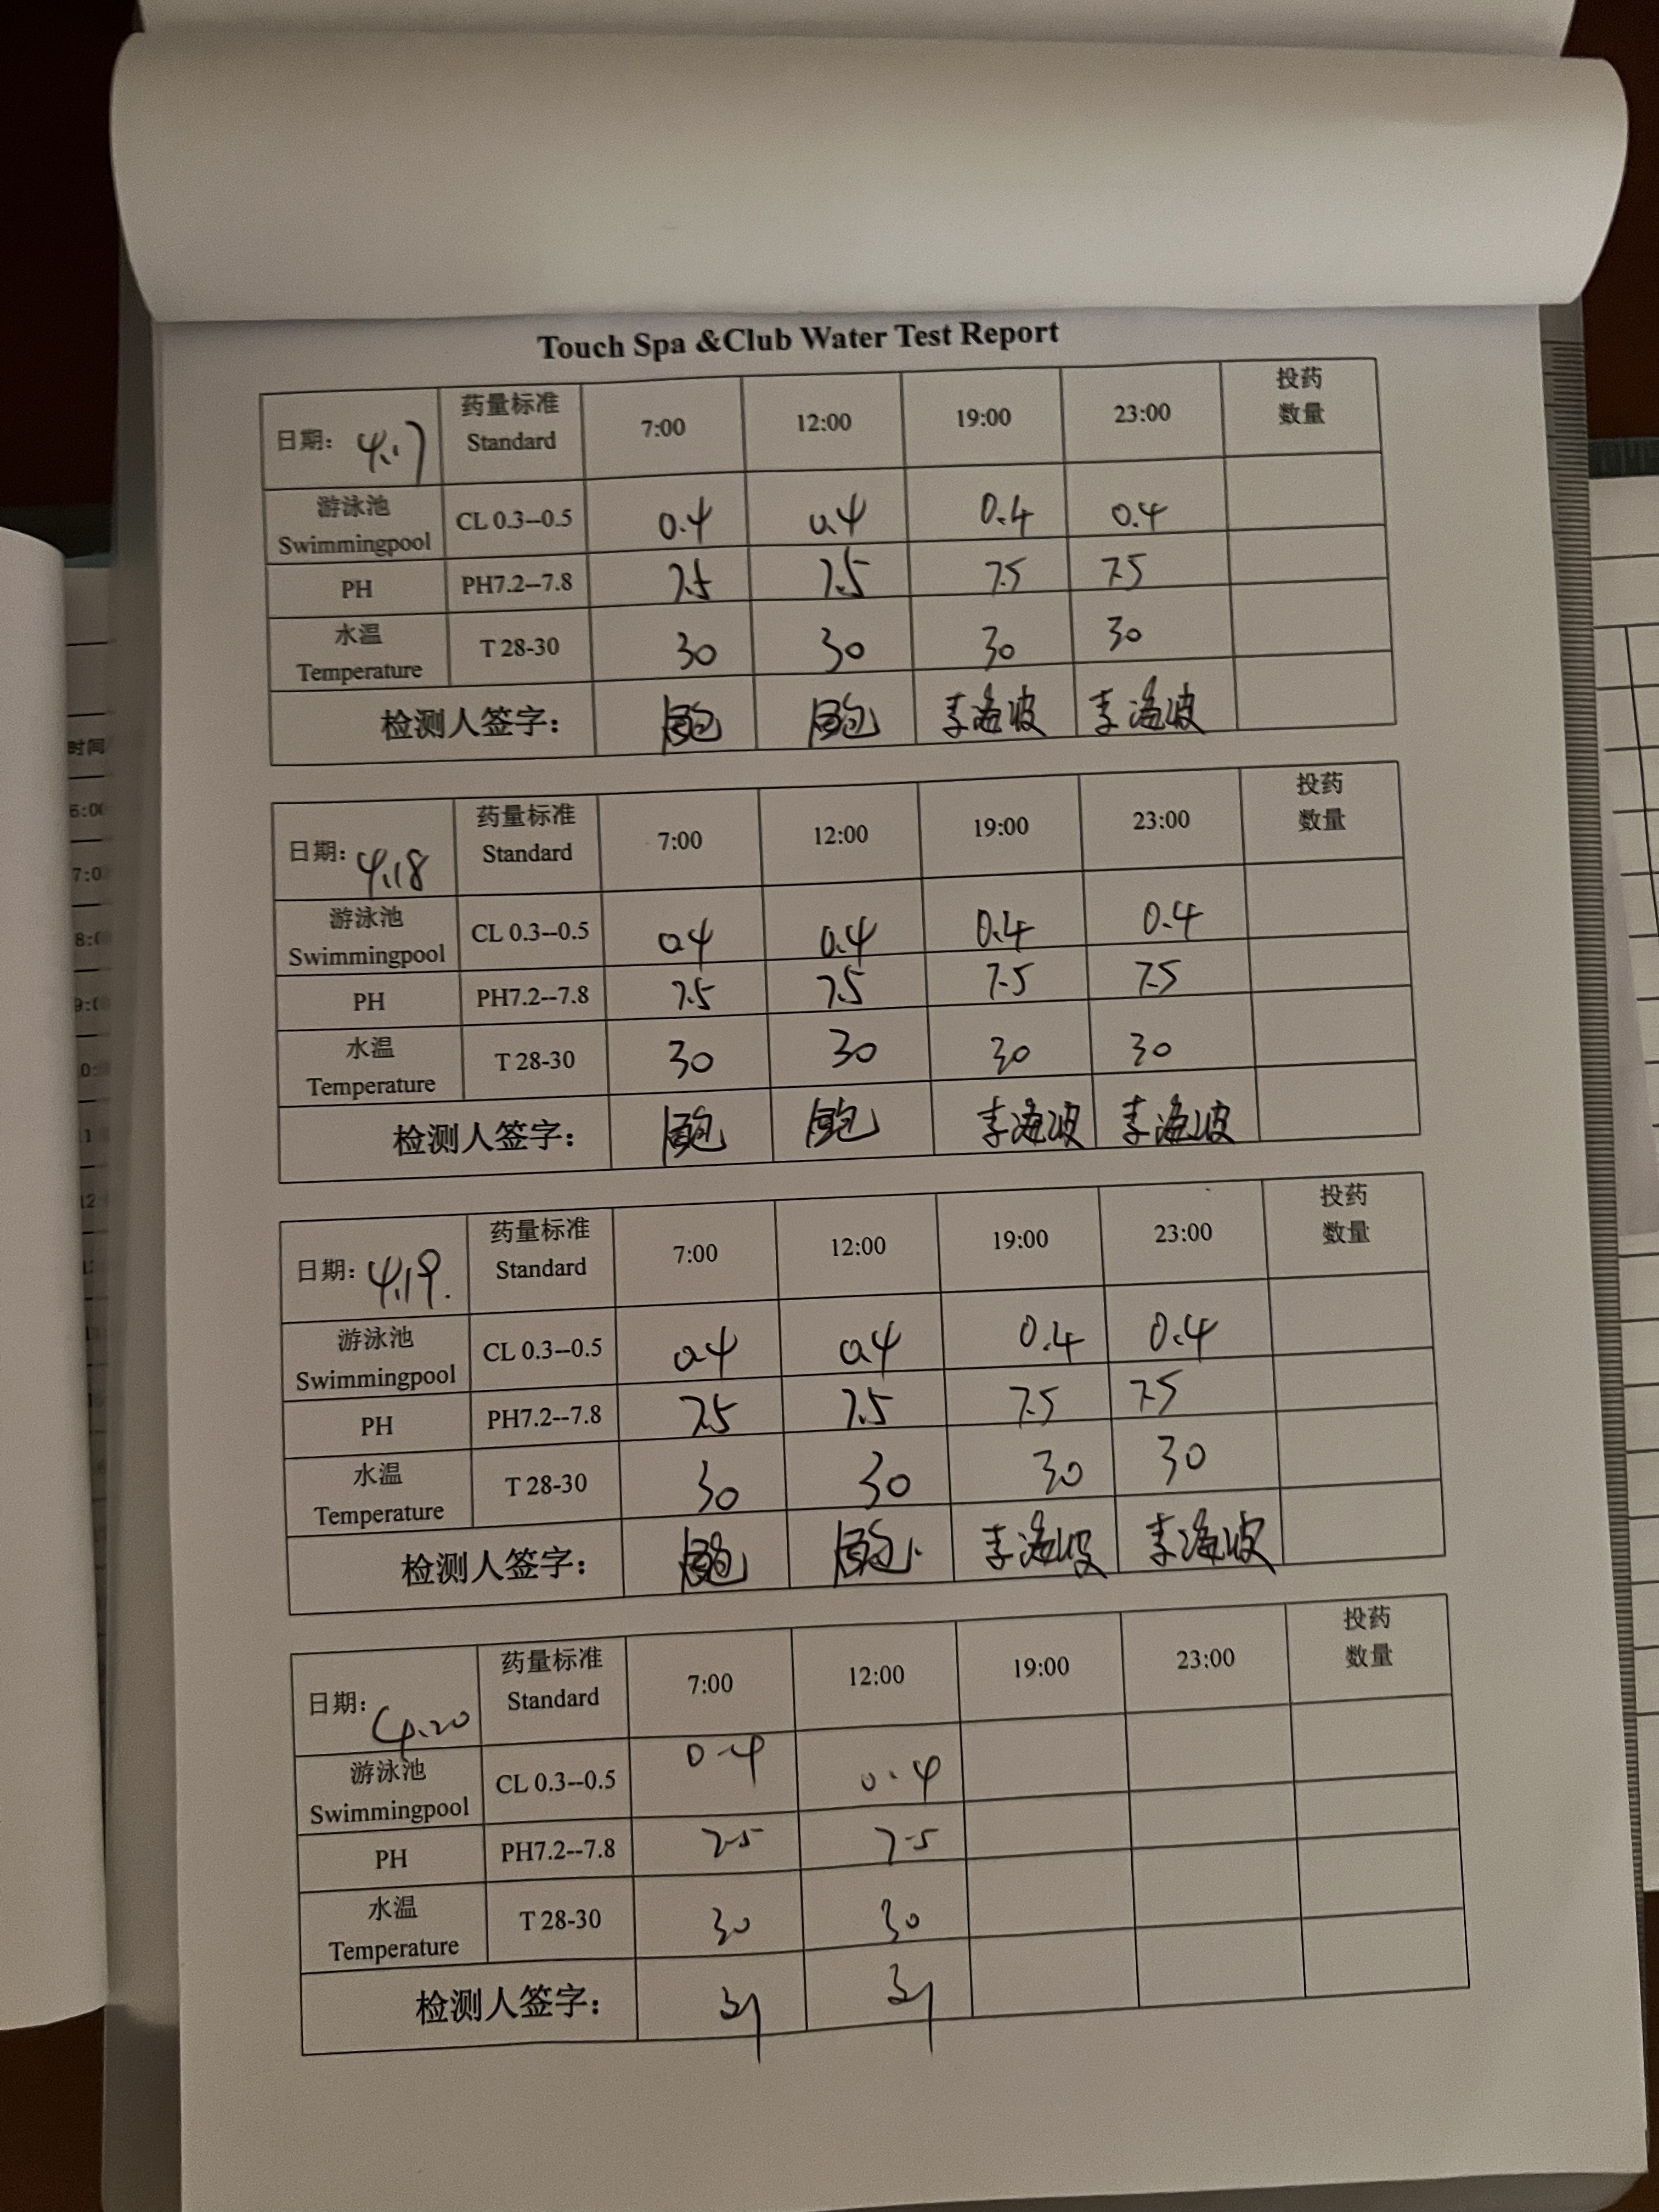 Touch Spa &Club Water Test Report
日期: 4.17 药量标准 Standard 7:00 12:00 19:00 23:00 投药数量
游泳池 Swimmingpool CL 0.3--0.5 0.4 0.4 0.4 0.4
PH PH7.2--7.8 7.5 7.5 7.5 7.5
水温 Temperature T 28-30 30 30 30 30
检测人签字: 李海波 李海波
日期: 4.18 药量标准 Standard 7:00 12:00 19:00 23:00 投药数量
游泳池 Swimmingpool CL 0.3--0.5 0.4 0.4 0.4 0.4
PH PH7.2--7.8 7.5 7.5 7.5 7.5
水温 Temperature T 28-30 30 30 30 30
检测人签字: 李海波 李海波
日期: 4.19. 药量标准 Standard 7:00 12:00 19:00 23:00 投药数量
游泳池 Swimmingpool CL 0.3--0.5 0.4 0.4 0.4 0.4
PH PH7.2--7.8 7.5 7.5 7.5 7.5
水温 Temperature T 28-30 30 30 30 30
检测人签字: 李海波 李海波
日期: 4.20 药量标准 Standard 7:00 12:00 19:00 23:00 投药数量
游泳池 Swimmingpool CL 0.3--0.5 0.4 0.4
PH PH7.2--7.8 7.5 7.5
水温 Temperature T 28-30 30 30
检测人签字:
时间